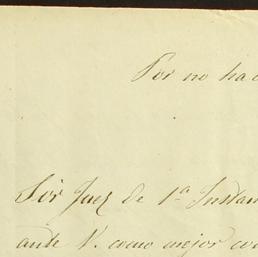 Por no ha
Sor Juez de 1ª Instan
ante V. como mejor co